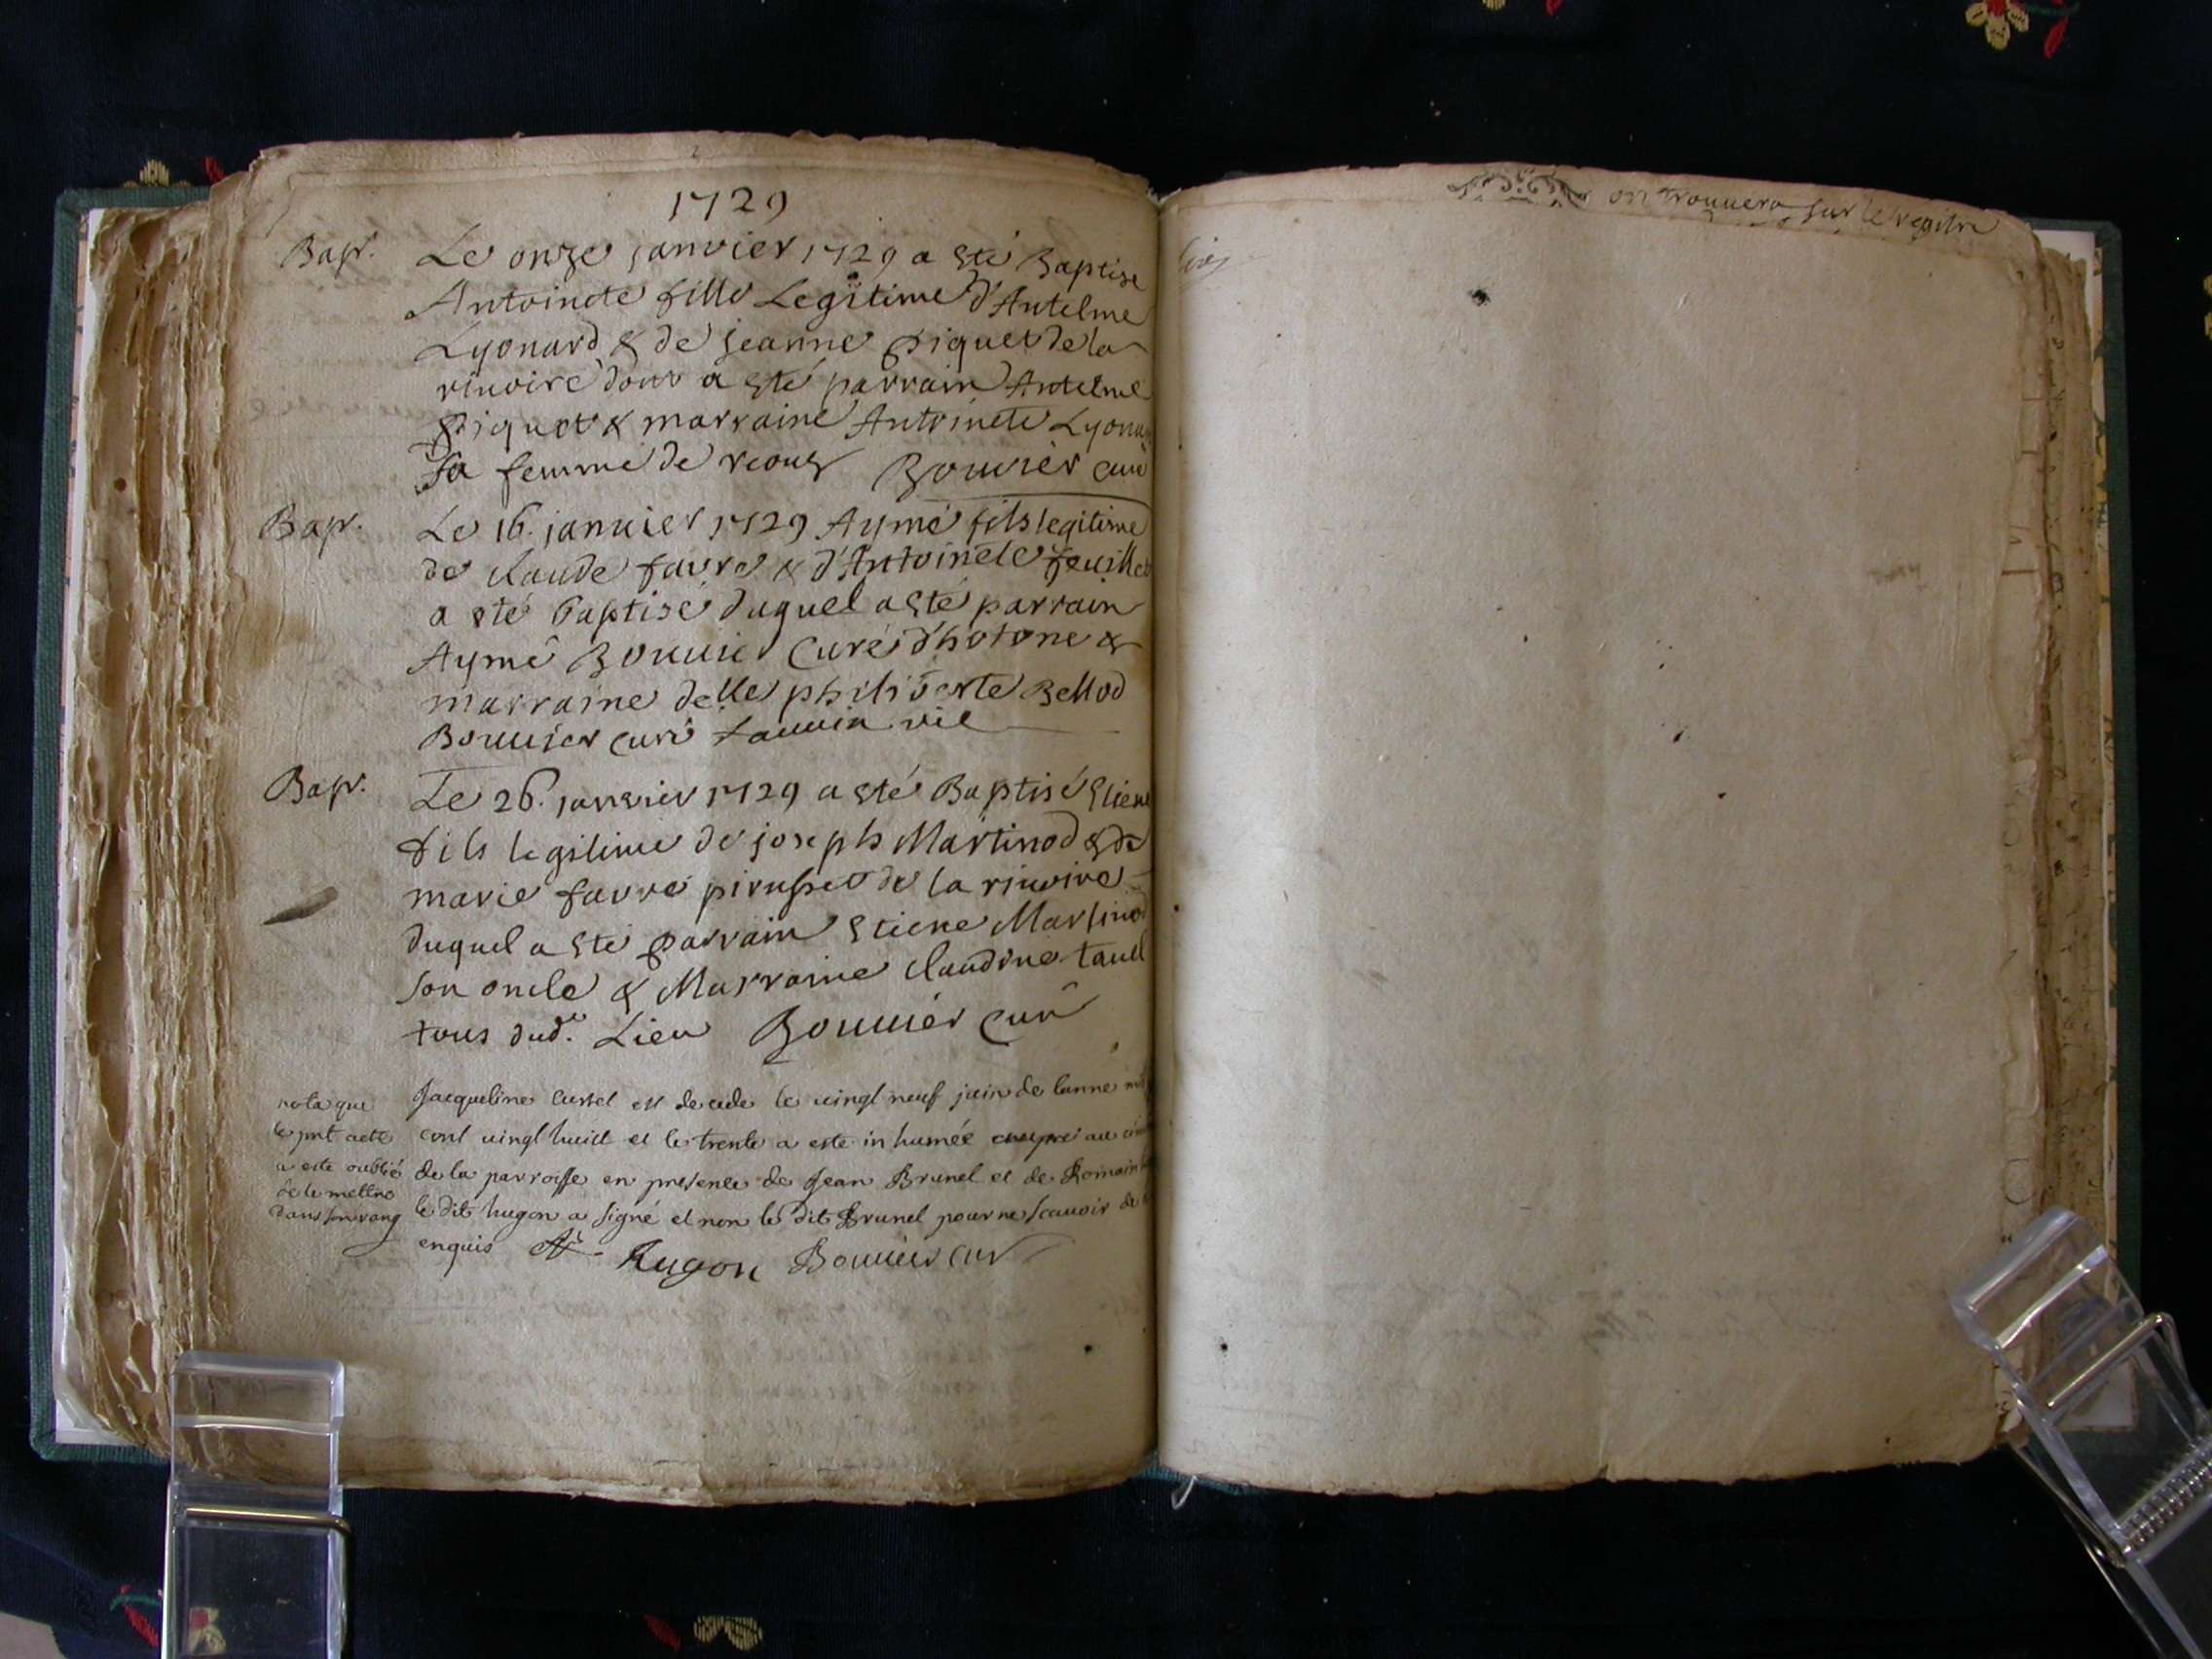 1729
Bapt. Le onze janvier 1729 a esté Baptise
Antoinete fille Legitime d'Antelme
Lyonard & de jeanne piquet de la
rivoire dont a esté parrain Antelme
piquet & marraine Antoinete Lyonar
sa femme de Bouvier curé
Bapt. Le 16. janvier 1729 Aymé fils legitime
de claude favre & d'Antoinete feuillet
a esté baptisé duquel a esté parrain
Aymé Bouvier curé d'hotone &
marraine delle philiberte Bellod
Bouvier curé
Bapt. Le 26. janvier 1729 a esté Baptisé Etiene
fils legitime de joseph Martinod & de
marie favre de la rivoire
duquel a esté parrain Etiene Martinod
son oncle & Marraine claudine tavel
tous dud. Lieu Bouvier curé
nota que
le pnt acte
a este oublié
de le mettre
dans son rang
Jacqueline est decede le vingt neuf juin de lanné mil
cent vingt huict et le trente a este in humée au
de la parroisse en presence de Jean Brunel et de Romain
le dit hugon a signé et non le dit Brunel pour ne scavoir de
enquis Hugon Bouvier cur
on trouvera sur le registre